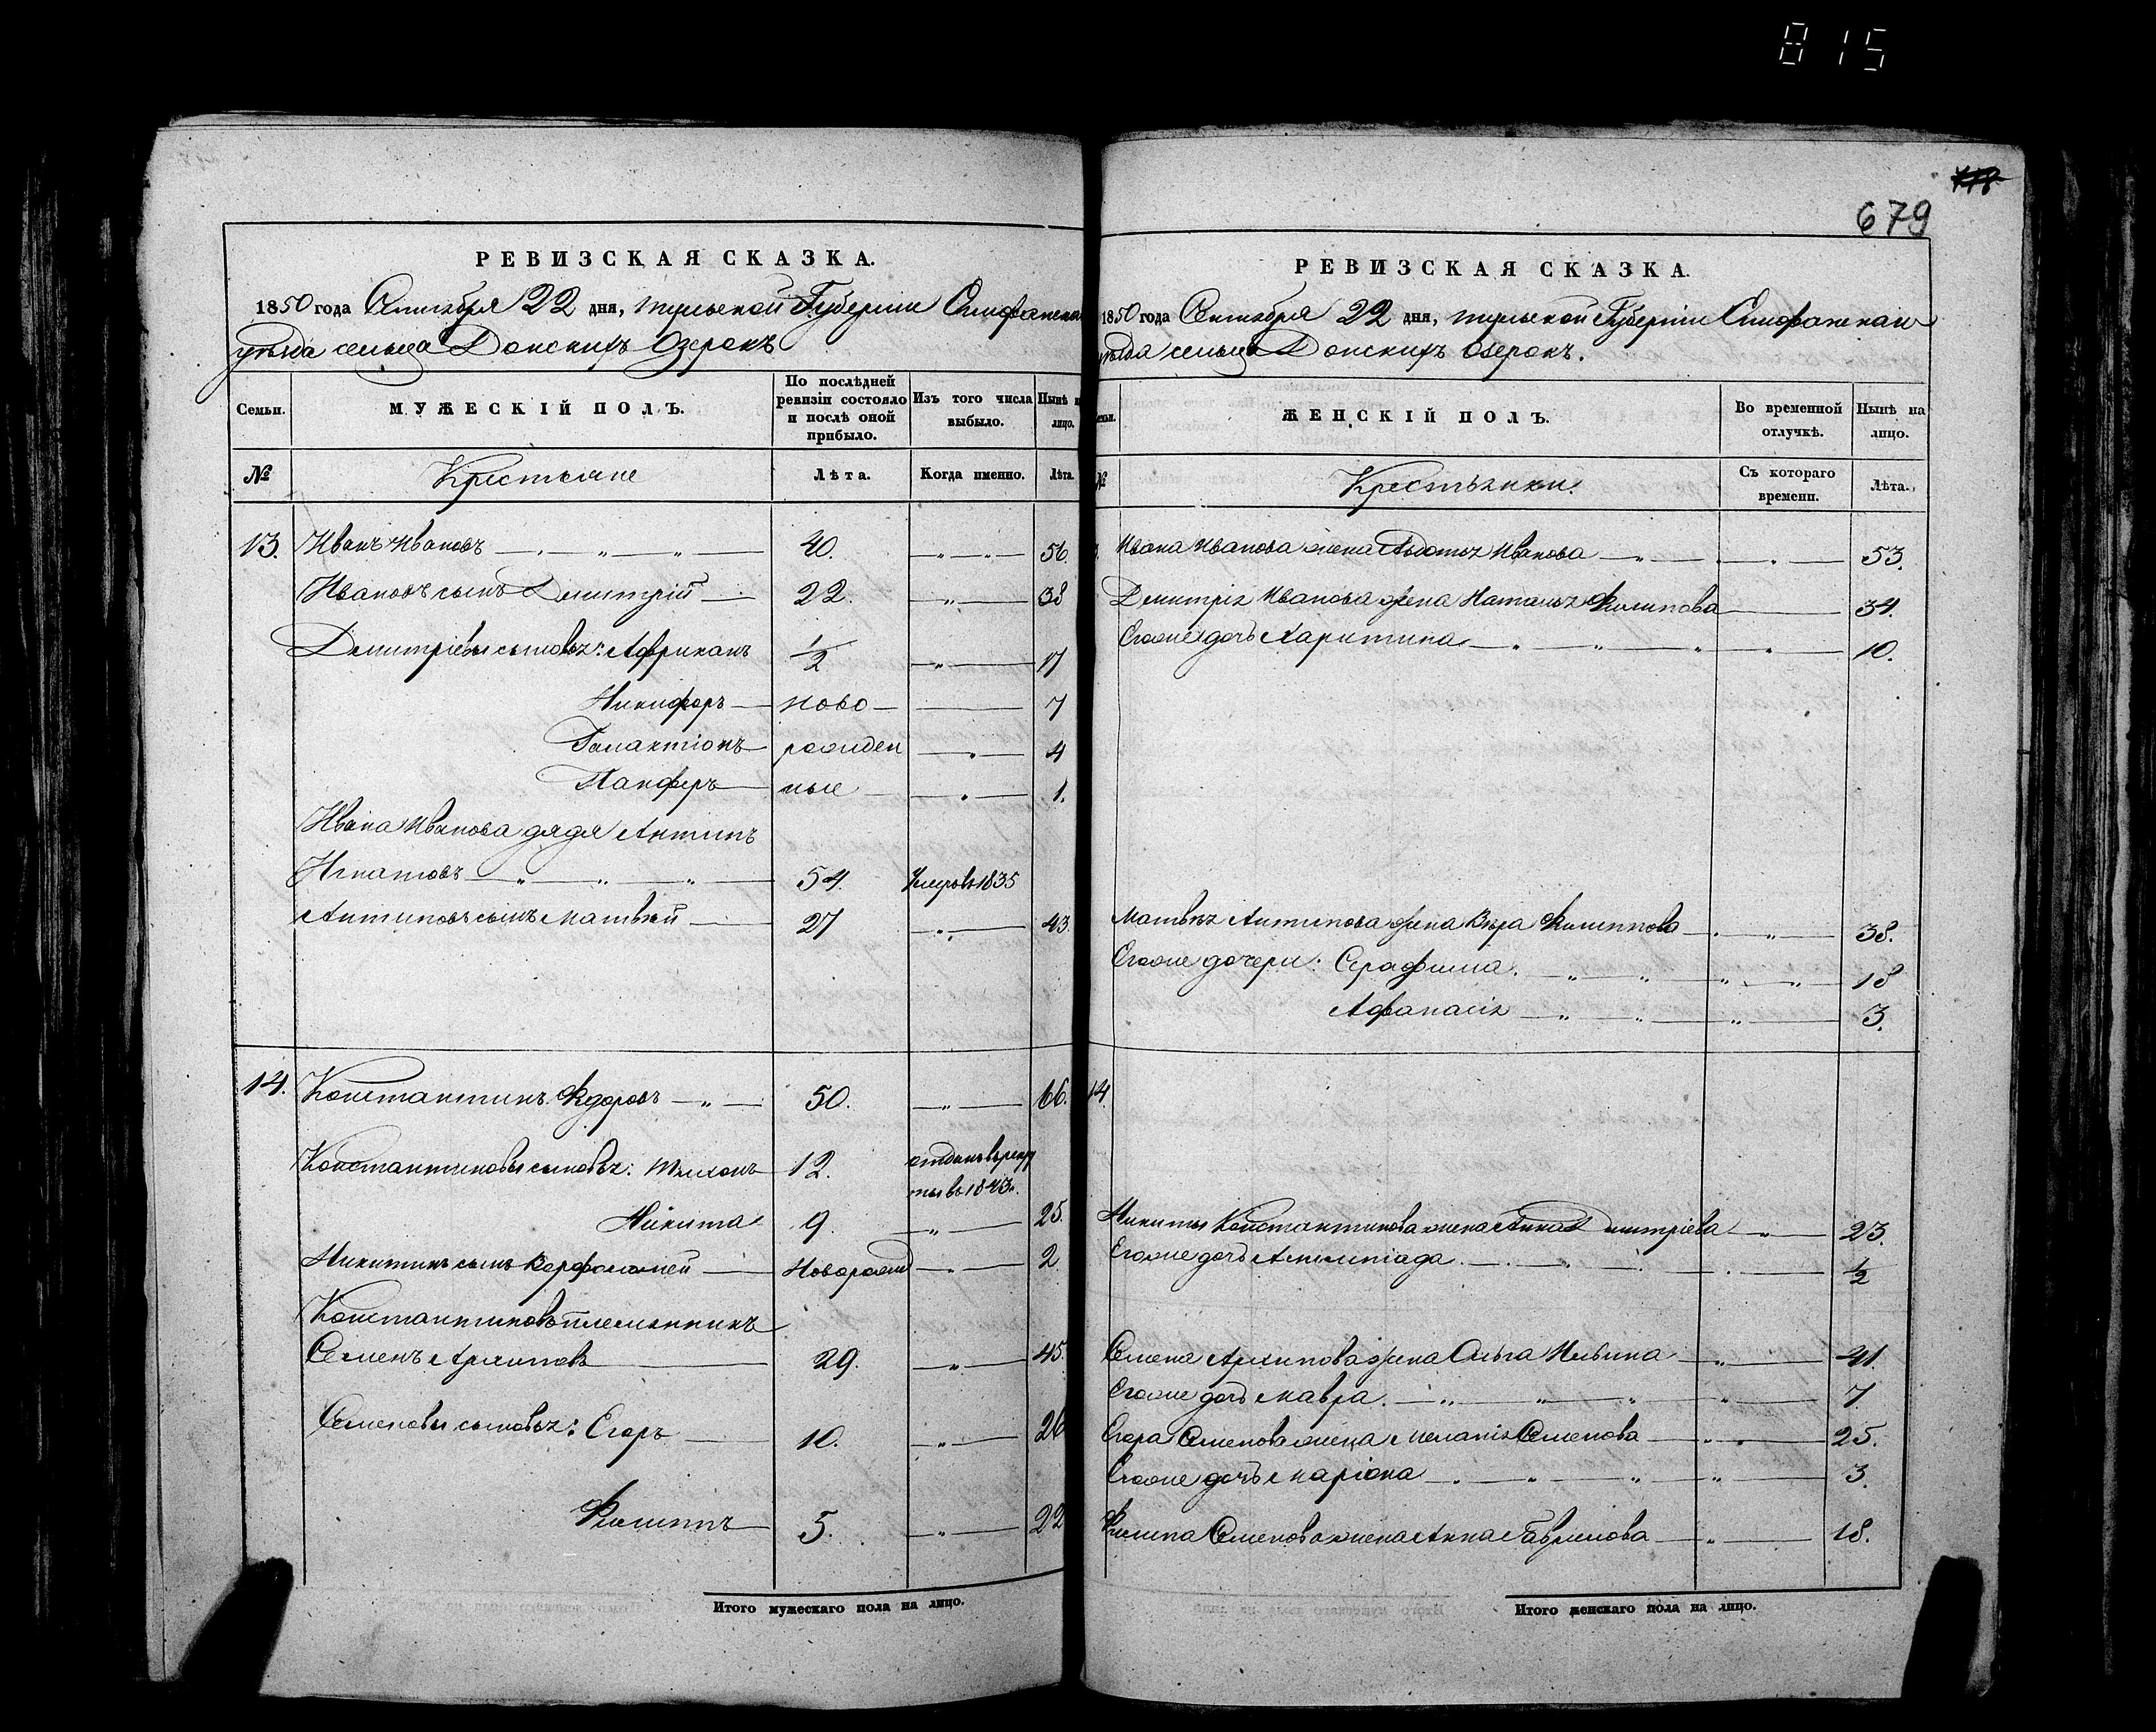 815
118
679
РЕВИЗСКАЯ СКАЗКА.
1850 года Сентября 22 дня, тульской Губернии Епифанска
уѣзда сельца Донскихъ Озерокъ
Семьи.
МУЖЕСКІЙ ПОЛЪ.
По послѣдней ревизіи состояло и послѣ оной прибыло.
Изъ того числа выбыло.
Нынѣ н лицо.
№
Крестьяне
Лѣта.
Когда именно.
Лѣта.
13. Иванъ Ивановъ 40. 56.
Ивановъ сынъ Дмитрій 22. 38
Дмитріевы сыновья: Африканъ 1/2 17
Никифоръ ново 7
Галактіонъ рожден 4
Панферъ ные 1.
Ивана Иванова дядя Антипъ
Игнатовъ 54. Умеръ въ 1835
Антиповъ сынъ Матвѣй 27 43.
14. Константинъ Федоровъ 50. 66.
Константиновы сыновья: Тихонъ 12. отданъ в рекру
ты въ 1843г.
Никита 9. 25.
Никитинъ сынъ Варфоломей Новорожд 2
Константиновъ племянникъ
Семенъ Архиповъ 29. 45.
Семеновы сыновья: Егоръ 10. 26
Филиппъ 5. 22
Итого мужескаго пола на лицо.
РЕВИЗСКАЯ СКАЗКА.
1850 года Сентября 22 дня, тульской Губерніи Епифанскаго
уѣзда сельца Донскихъ Озерокъ.
емьи.
ЖЕНСКІЙ ПОЛЪ.
Во временной отлучкѣ.
Нынѣ на лицо.
№
Крестьянки.
Съ котораго времени.
Лѣта.
Ивана Иванова жена Авдотья Иванова 53.
Дмитрія Иванова жена Наталья Филипова 34.
Егоже дочь Харитина 10.
Матвѣя Антипова жена Вѣра Филиппова 38.
Егоже дочери: Серафима. 18
Афанасія 3.
14.
Никиты Константинова жена Анна Дмитріева 23.
Егоже дочь Асклипіада. 1/2
Семена Архипова жена Ольга Ильина 41.
Егоже дочь Мавра. 7.
Егора Семенова жена Меланія Семенова 25.
Егоже дочь Маріона 3.
Филипа Семенова жена Анна Гаврилова 18.
Итого женскаго пола на лицо.